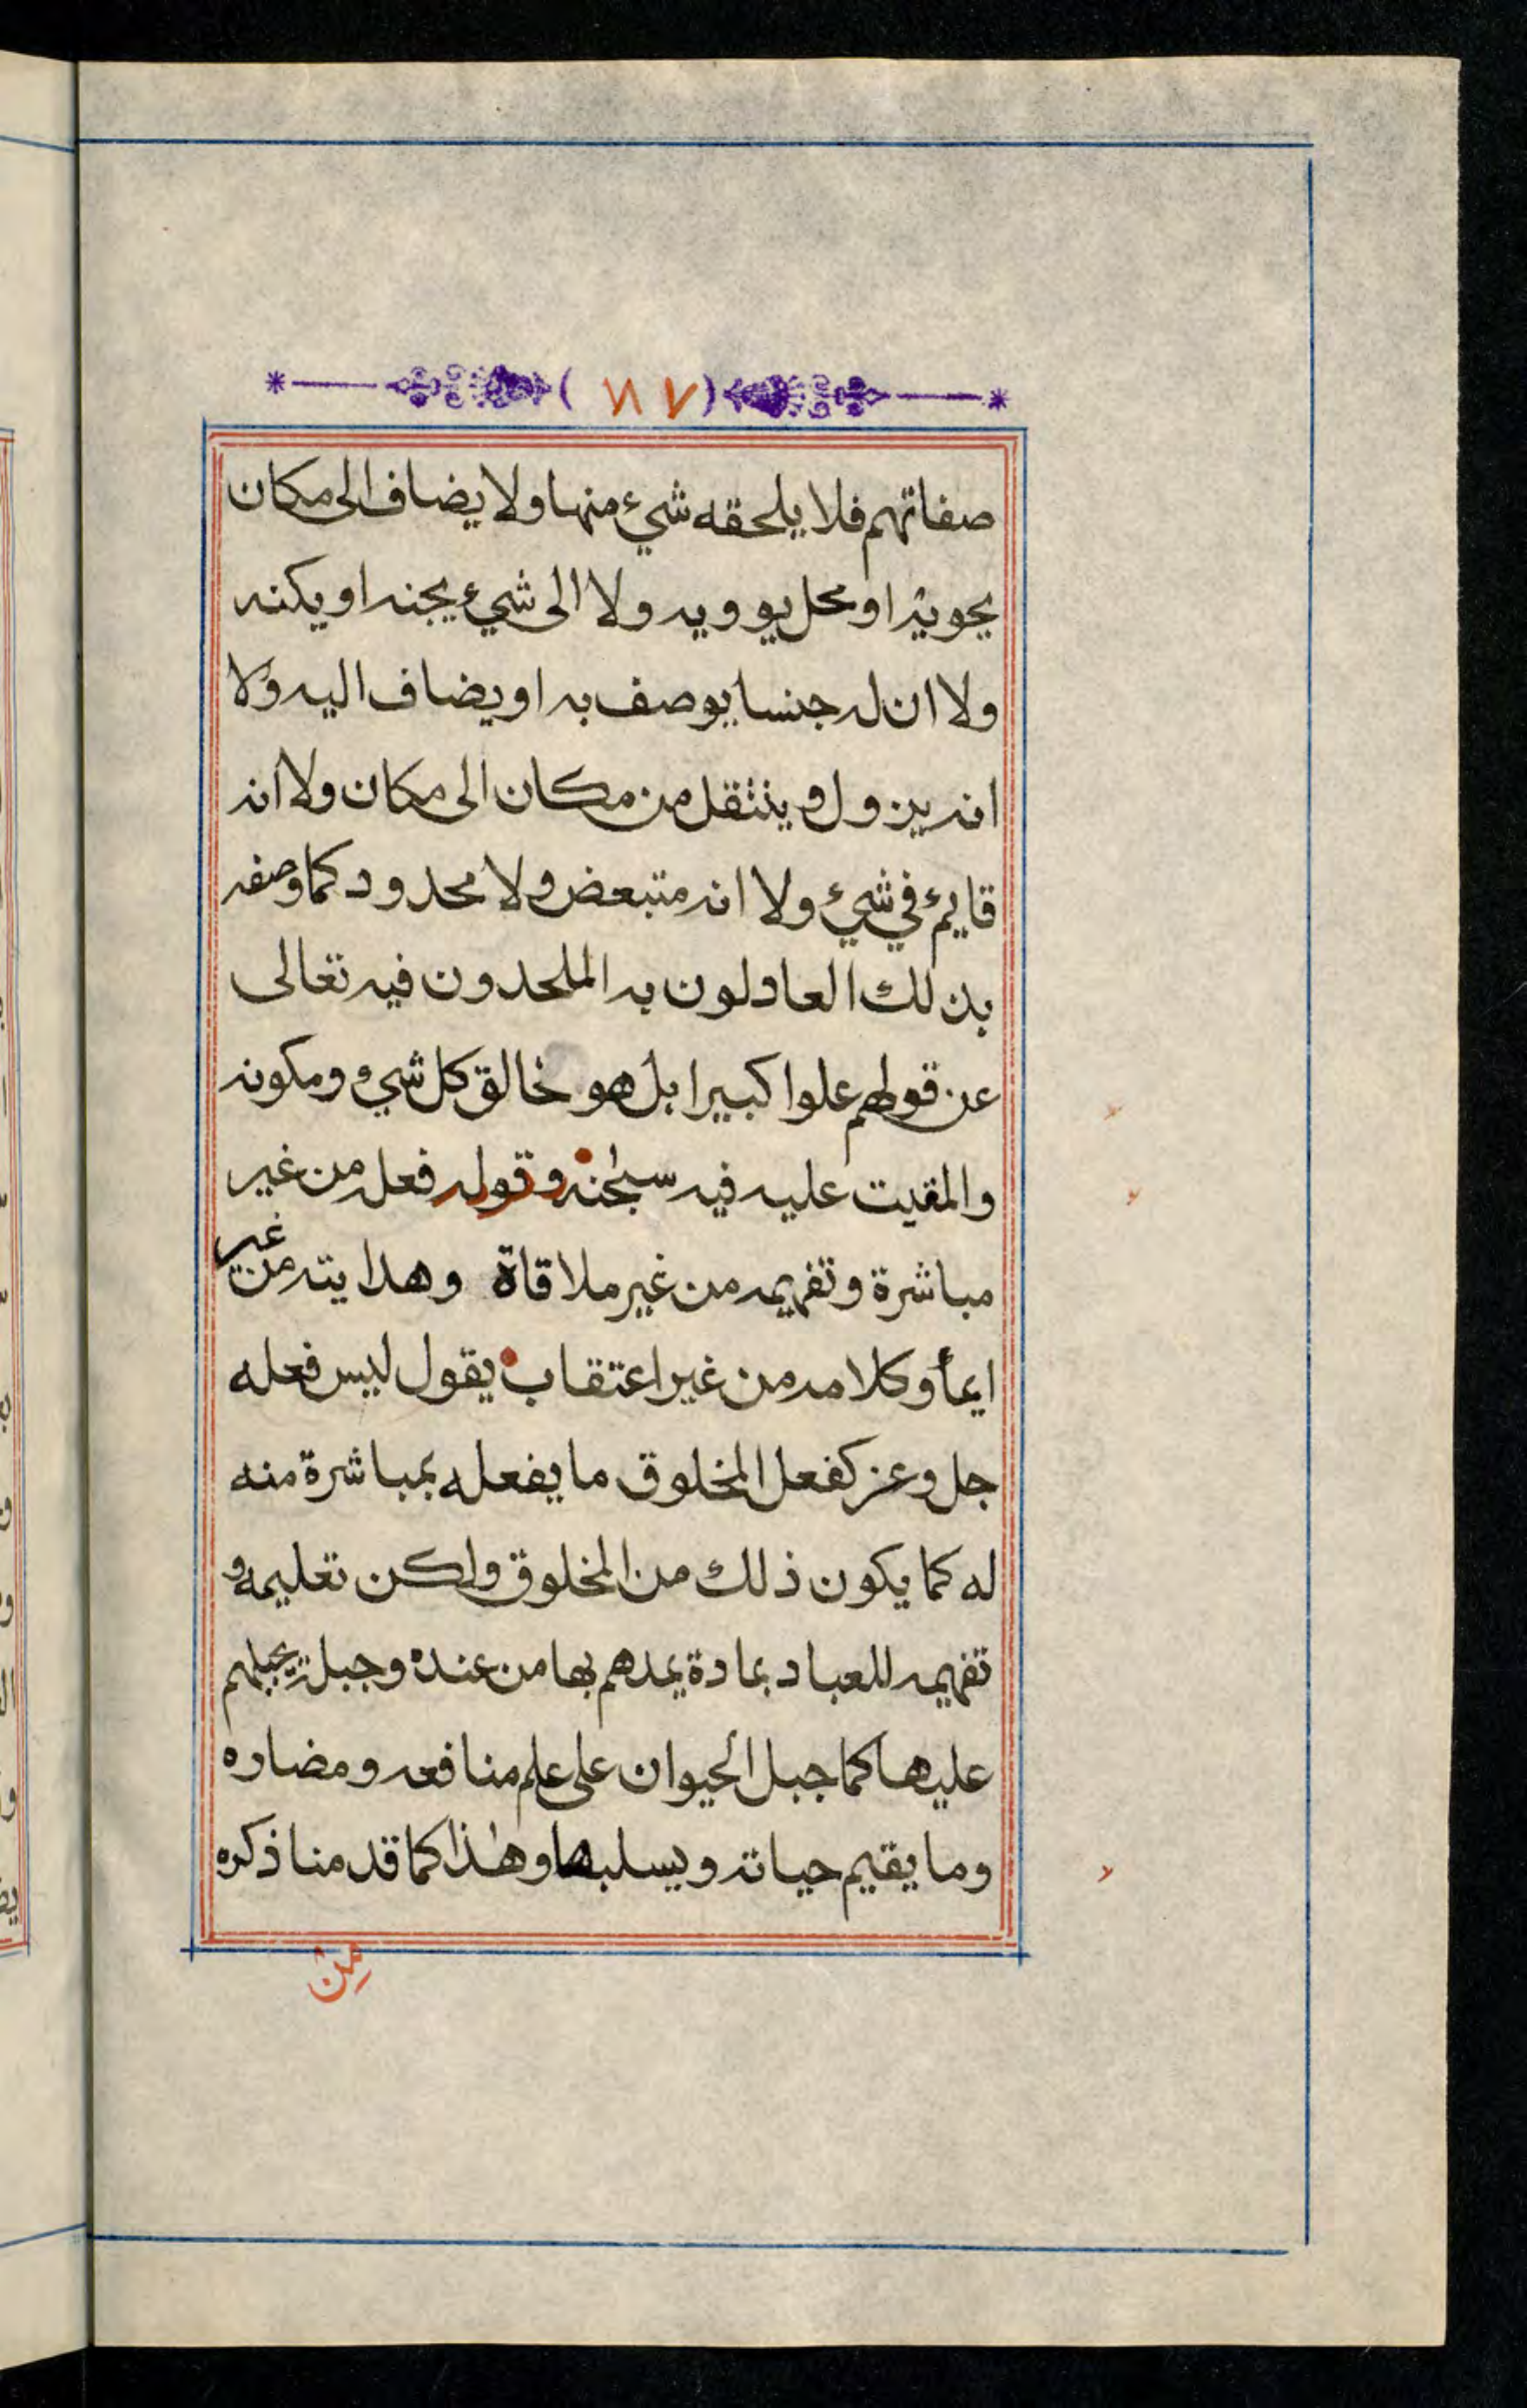 ٧٨٧
صفاتهم فلا يلحقه شيء منها ولا يضاف الى مكان
يحويه او محل يوويه ولا الى شيء يجنه او يكنه
ولا ان له جنسا يوصف به او يضاف اليه ولا
انه يزول وينتقل من مكان الى مكان ولا انه
قايم في شيء ولا انه متبعض ولا محدود كما وصفه
بذلك العادلون به الملحدون فيه تعالى
عن قولهم علوا كبيرا بل هو خالق كل شيء ومكونه
والمقيت عليه فيه سبحنه وقوله فعله من غير
مباشرة وتفهيمه من غير ملاقاة وهدايته من غير
ايمأ وكلامه من غير اعتقاب يقول ليس فعله
جل وعز كفعل المخلوق ما يفعله بمباشرة منه
له كما يكون ذلك من المخلوق ولكن تعليمه و
تفهيمه للعباد بمادة يمدهم بها من عنده وجبلة يجبلهم
عليها كما جبل الحيوان على علم منافعه ومضاره
وما يقيم حياته ويسلبها وهذا كما قدمنا ذكره
من